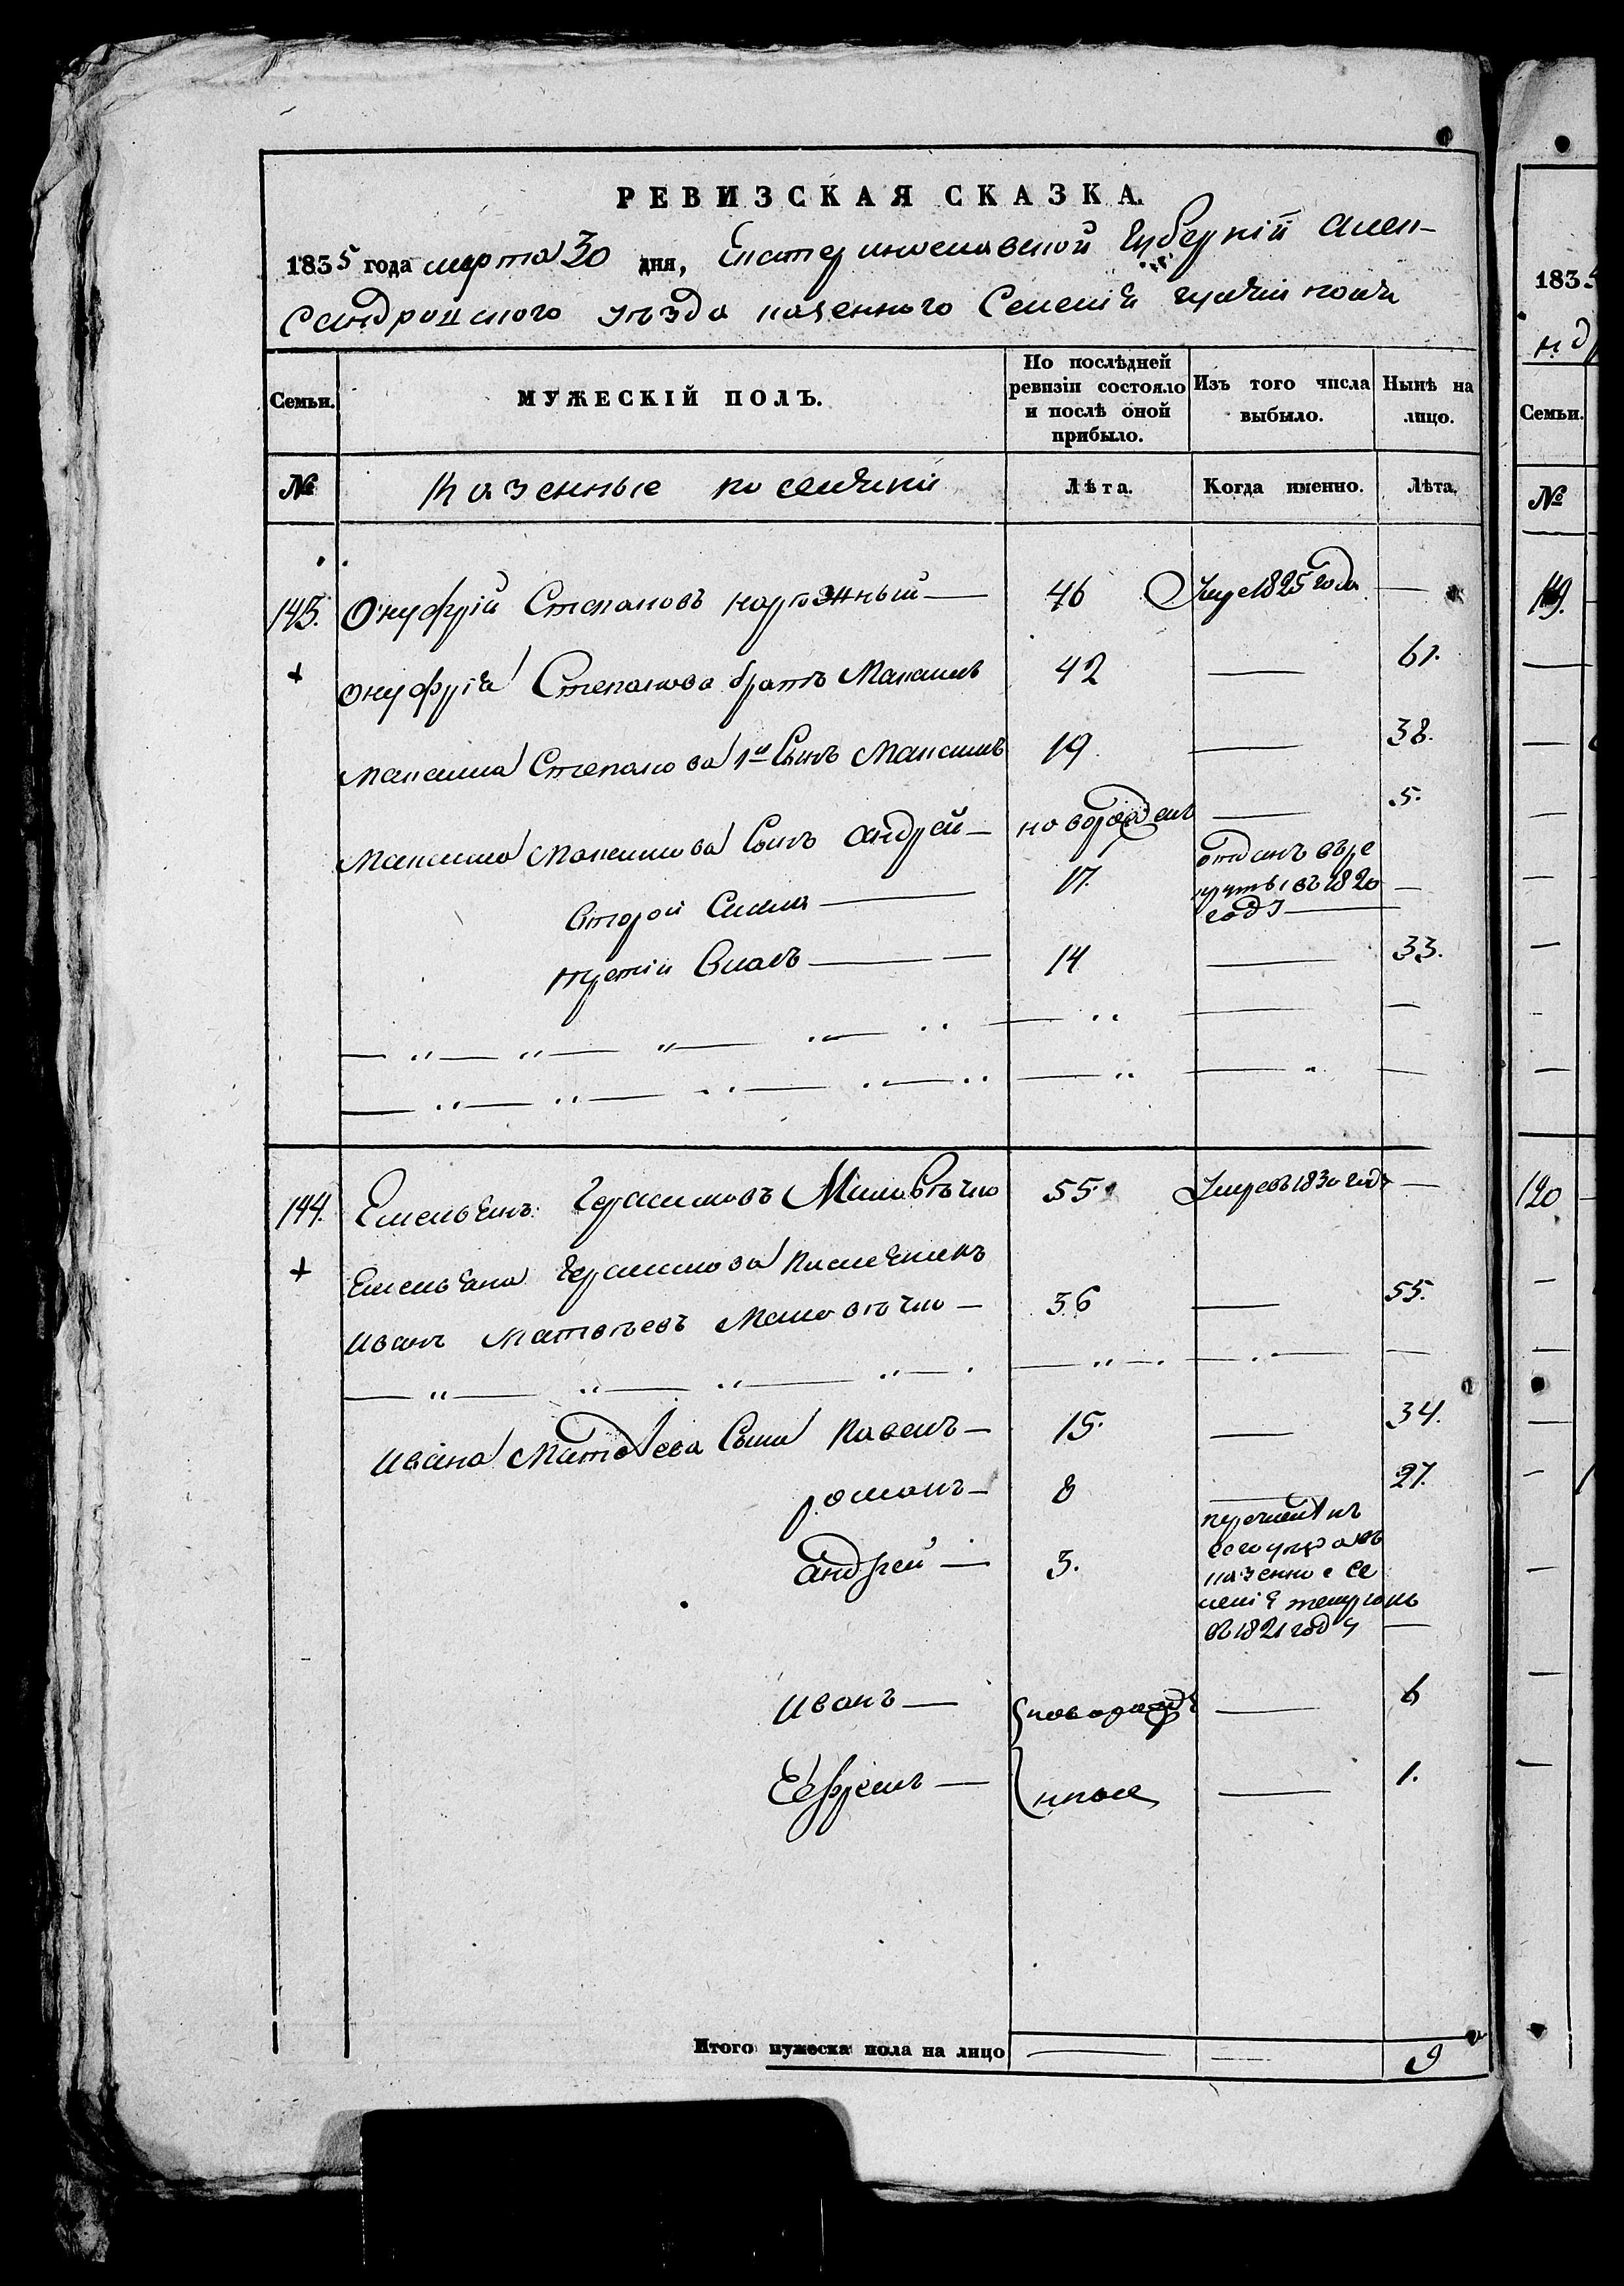 РЕВИЗСКАЯ СКАЗКА.
1835 года марта 30 дня, Екатеринославской Губерніи Алек-
сандровского уезда казенного Селенія
Семьи.
МУЖЕСКІЙ ПОЛЪ.
По послѣдней ревизіи состояло и послѣ оной прибыло.
Изъ того числа выбыло.
Нынѣ на лицо.
№
Казенные поселяни
Лѣта.
Когда именно.
Лѣта.
143. Онуфрій Степановъ — 46 Умре 1825 года —
+ Онуфрія Степанова братъ Максимъ 42 — 61.
Максима Степанова 1й Сынъ Максимъ 19 — 38.
Максима Максимова Сынъ Андрей — новорожденъ — 5.
второй — 17. отданъ въ ре
круты въ 1820 —
годȣ —
третій Власъ — 14 — 33.
144. Емельянъ Герасимовъ 55. Умре въ 1830 годȣ —
+ Емельяна Герасимова племяникъ
Иванъ Матвѣевъ — 36 — 55.
Ивана Матвѣева Сыни Павелъ — 15. — 34.
романъ — 8 — 27.
Андрей — 3. перечислінъ
казенное се
леніе
въ 1821 годȣ —
Иванъ — новорожд — 6
Ефремъ — — 1.
Итого мужеска пола на лицо — — 9
1835
Семьи.
№
119.
120